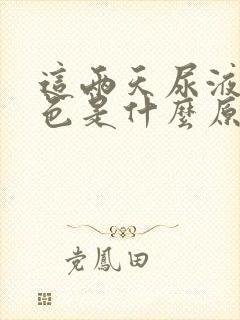 這兩天尿液
色是什麼原
党鳳田